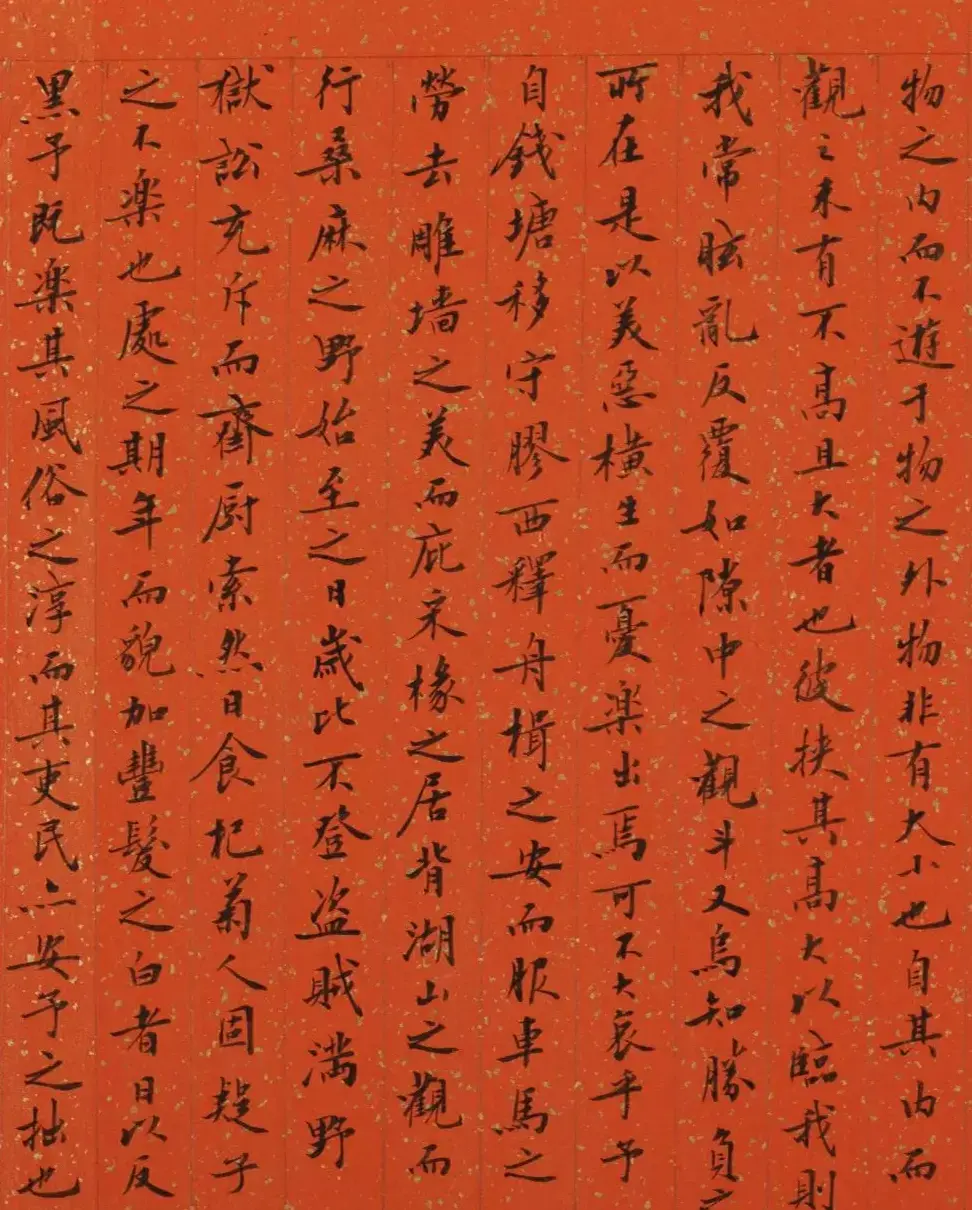 物之内而不遊于物之外物非有大小也自其内而
觀之未有不高且大者也彼挟其高大以臨我則
我常眩亂反覆如隙中之觀斗又烏知勝負之
所在是以美惡橫生而憂楽出焉可不大哀乎予
自錢塘移守膠西釋舟楫之安而服車馬之
勞去雕墻之美而庇采椽之居背湖山之觀而
行桑麻之野始至之日歲比不登盜賊滿野
獄訟充斥而齋厨索然日食杞菊人固疑予
之不楽也處之期年而貌加豐髮之白者日以反
黑予既楽其風俗之淳而其吏民亦安予之拙也